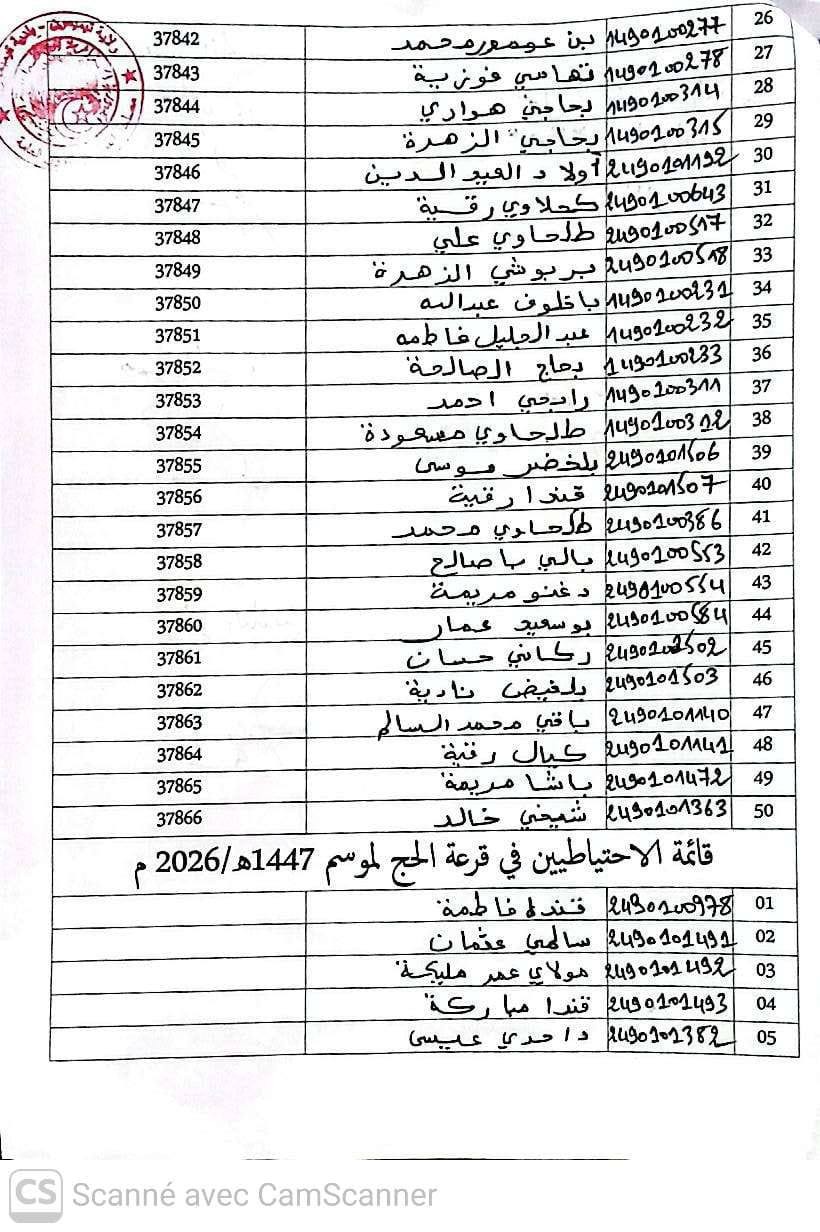 26 1490100277 بن عومر محمد 37842
27 1490100278 تهامي فوزية 37843
28 1490100314 بحاجي هواري 37844
29 1490100315 بحاجي الزهرة 37845
30 2490101192 أولاد العيد الدين 37846
31 2490100643 كحلاوي رقية 37847
32 2490100517 طلحاوي علي 37848
33 2490100518 بربوشي الزهرة 37849
34 1490100231 باخلوف عبدالله 37850
35 1490100232 عبد الجليل فاطمه 37851
36 1490100233 بحاج الصالحة 37852
37 1490100311 رابحي احمد 37853
38 1490100312 طلحاوي مسعودة 37854
39 2490101506 بلخضر موسى 37855
40 2490101507 قندا رقية 37856
41 2490100386 طلحاوي محمد 37857
42 2490100553 بالي با صالح 37858
43 2490100554 دغنو مريمة 37859
44 2490100584 بوسعيد عمار 37860
45 2490101502 ركاني حسان 37861
46 2490101503 بلفيض نادية 37862
47 2490101140 باقي محمد السالم 37863
48 2490101141 كيال رقية 37864
49 2490101472 باشا مريمة 37865
50 2490101363 شيخي خالد 37866
قائمة الاحتياطيين في قرعة الحج لموسم 1447هـ/2026 م
01 2490100978 قندا فاطمة
02 2490101491 سالمي عثمان
03 2490101492 مولاي عمر مليكة
04 2490101493 قندا مباركة
05 2490101382 داحدي عيسى
CS Scanné avec CamScanner